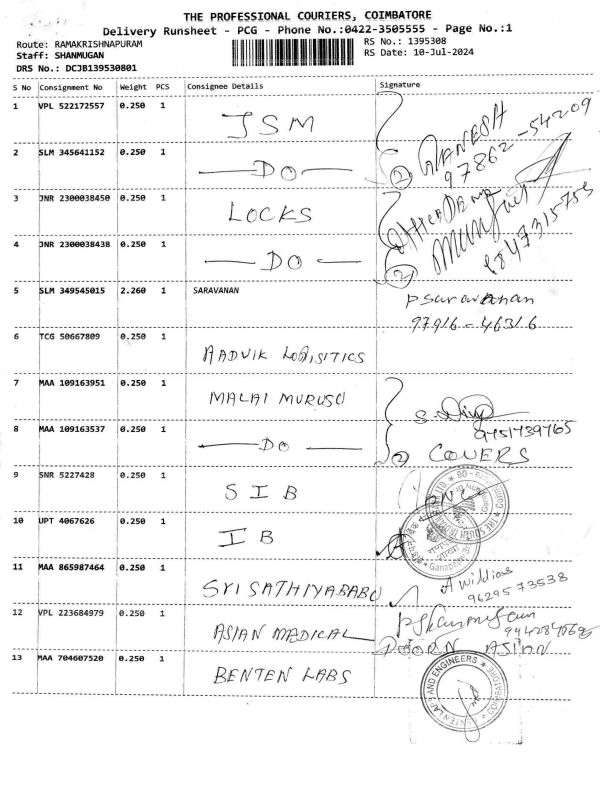 THE PROFESSIONAL COURIERS, COIMBATORE
Delivery Runsheet - PCG - Phone No.:0422-3505555 - Page No.:1
Route: RAMAKRISHNAPURAM
RS No.: 1395308
Staff: SHANMUGAN
RS Date: 10-Jul-2024
DRS No.: DCJB139530801
S No Consignment No Weight PCS Consignee Details Signature
1 VPL 522172557 0.250 1 JSM
GANESH
97862-54209
2 SLM 345641152 0.250 1 DO 2
3 JNR 2300038450 0.250 1 LOCKS
4 JNR 2300038438 0.250 1 DO 2
9847315755
5 SLM 349545015 2.260 1 SARAVANAN
P Saravanan
97916-46316
6 TCG 50667809 0.250 1 AADVIK LOGISITICS
7 MAA 109163951 0.250 1 MALAI MURUGU
9751739765
8 MAA 109163537 0.250 1 DO 2 COVERS
9 SNR 5227428 0.250 1 SIB
10 UPT 4067626 0.250 1 IB
11 MAA 865987464 0.250 1 SRI SATHIYABABU
A Williams
9629573538
12 VPL 223684979 0.250 1 ASIAN MEDICAL
POORN ASIAN
13 MAA 704607520 0.250 1 BENTEN LABS
BENTEN LABS AND ENGINEERS
COIMBATORE